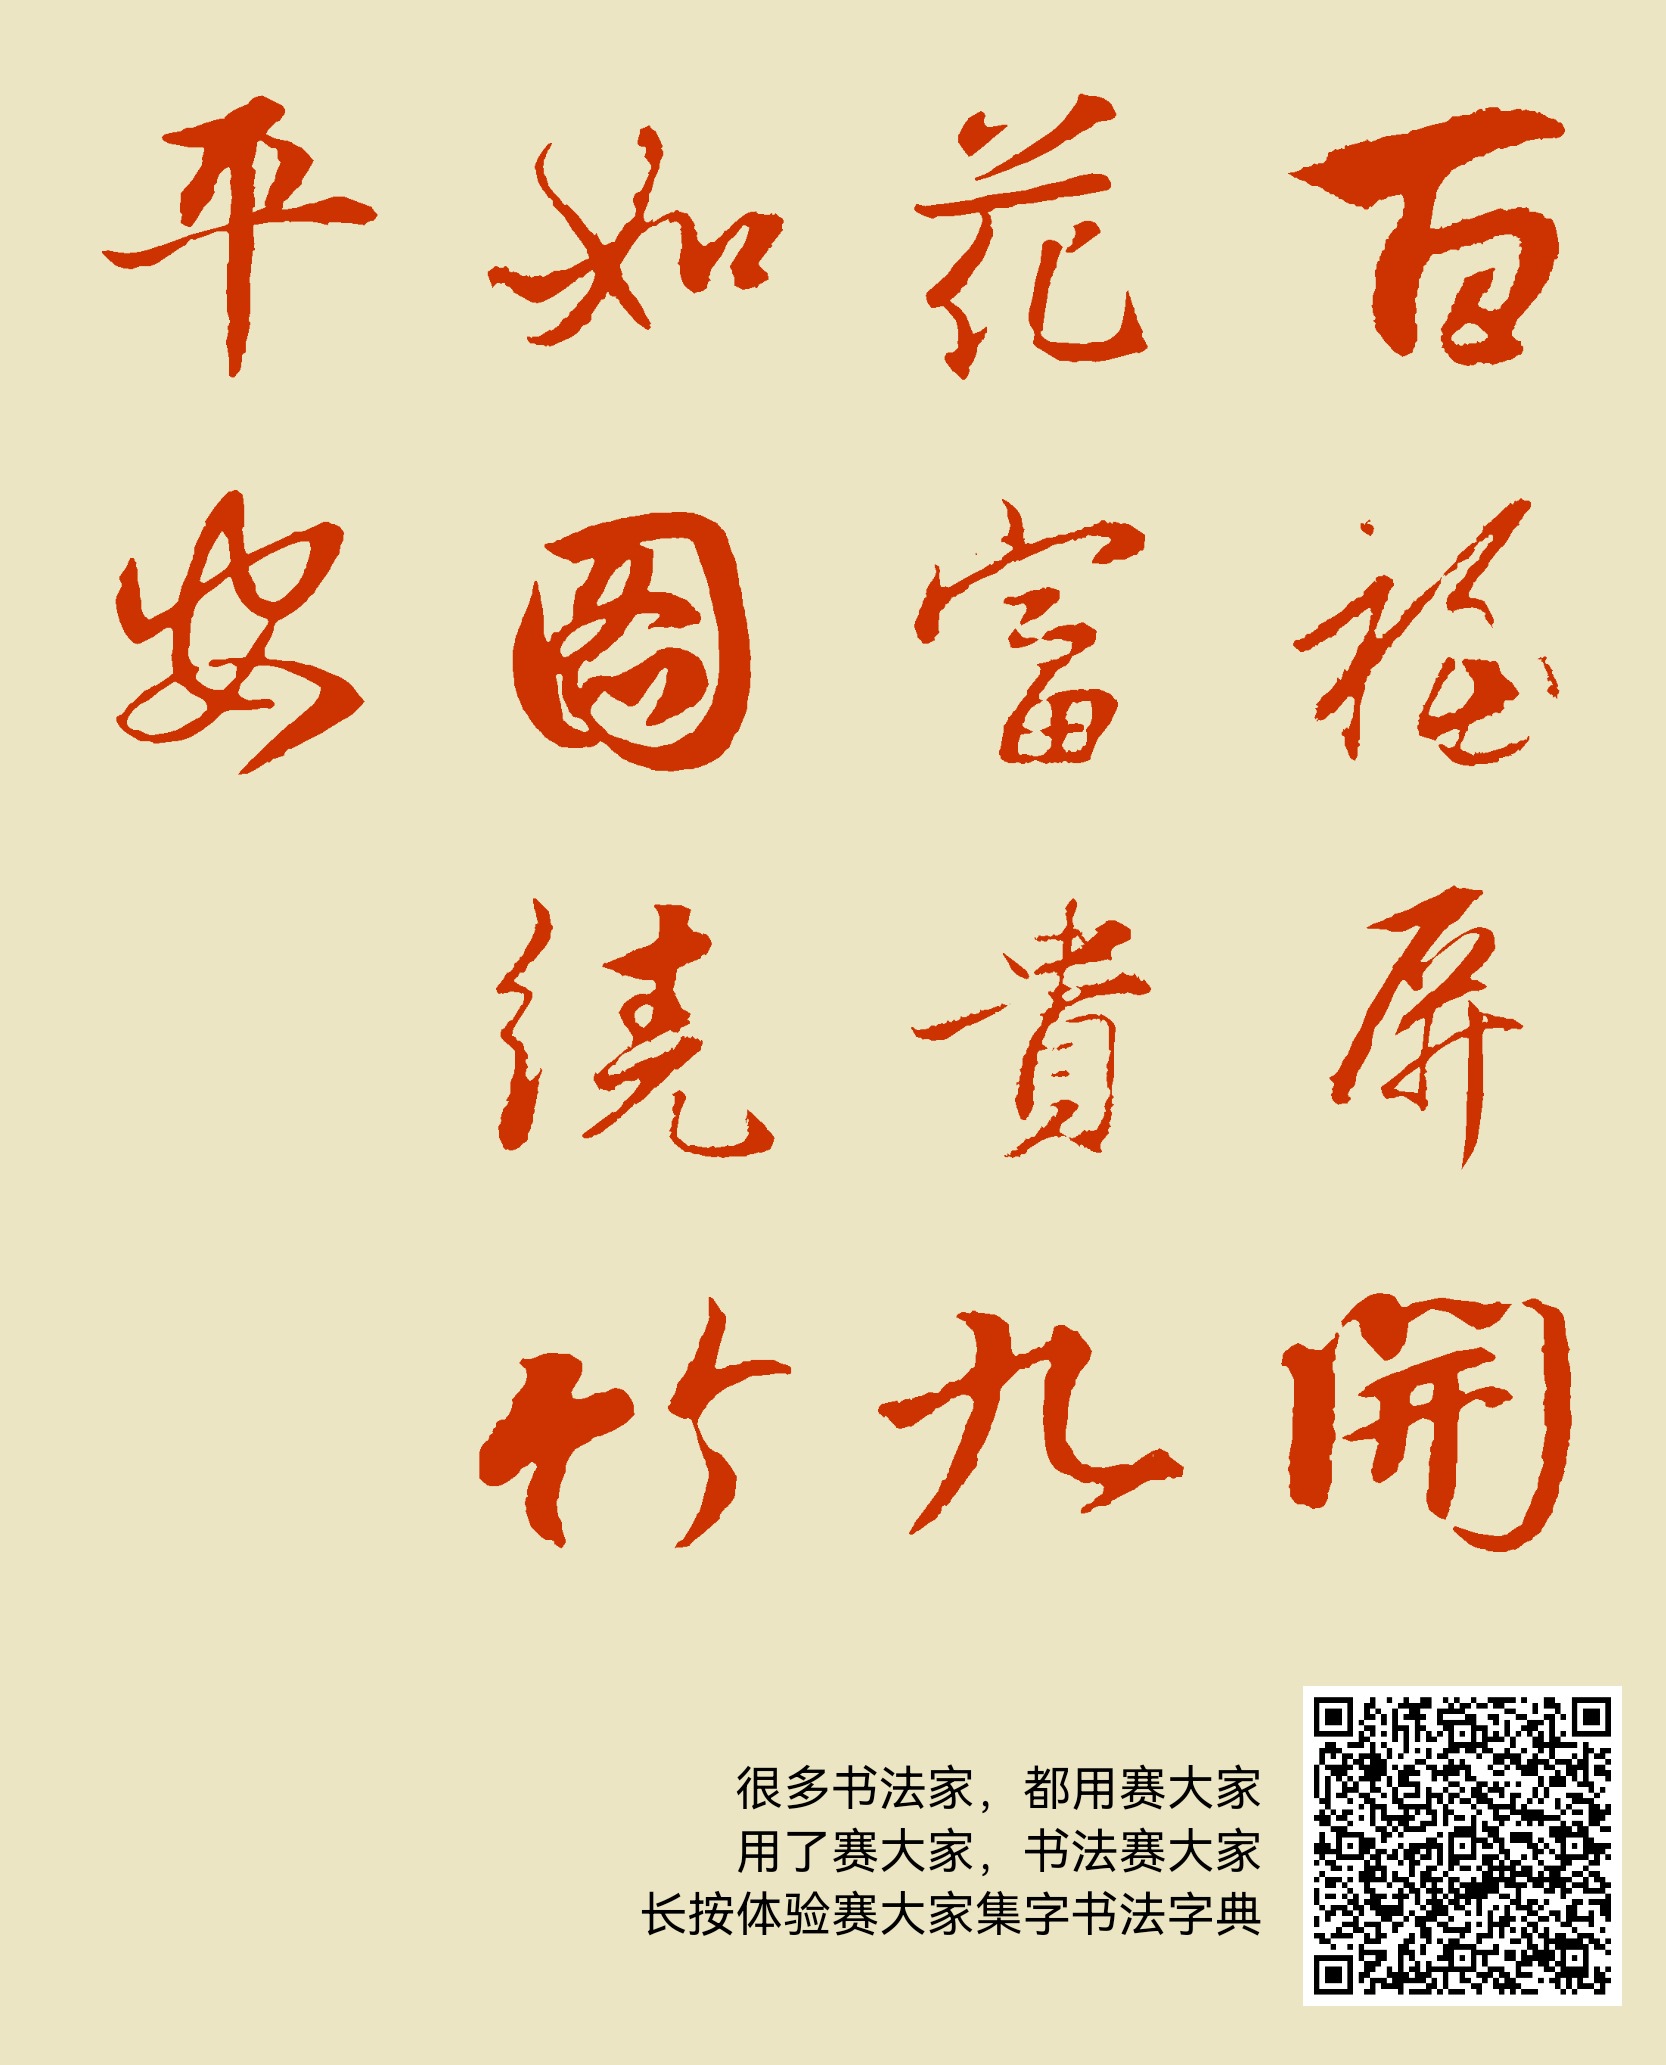 百福屏開
花富貴九
如圖繞竹
平安
很多书法家，都用赛大家
用了赛大家，书法赛大家
长按体验赛大家集字书法字典